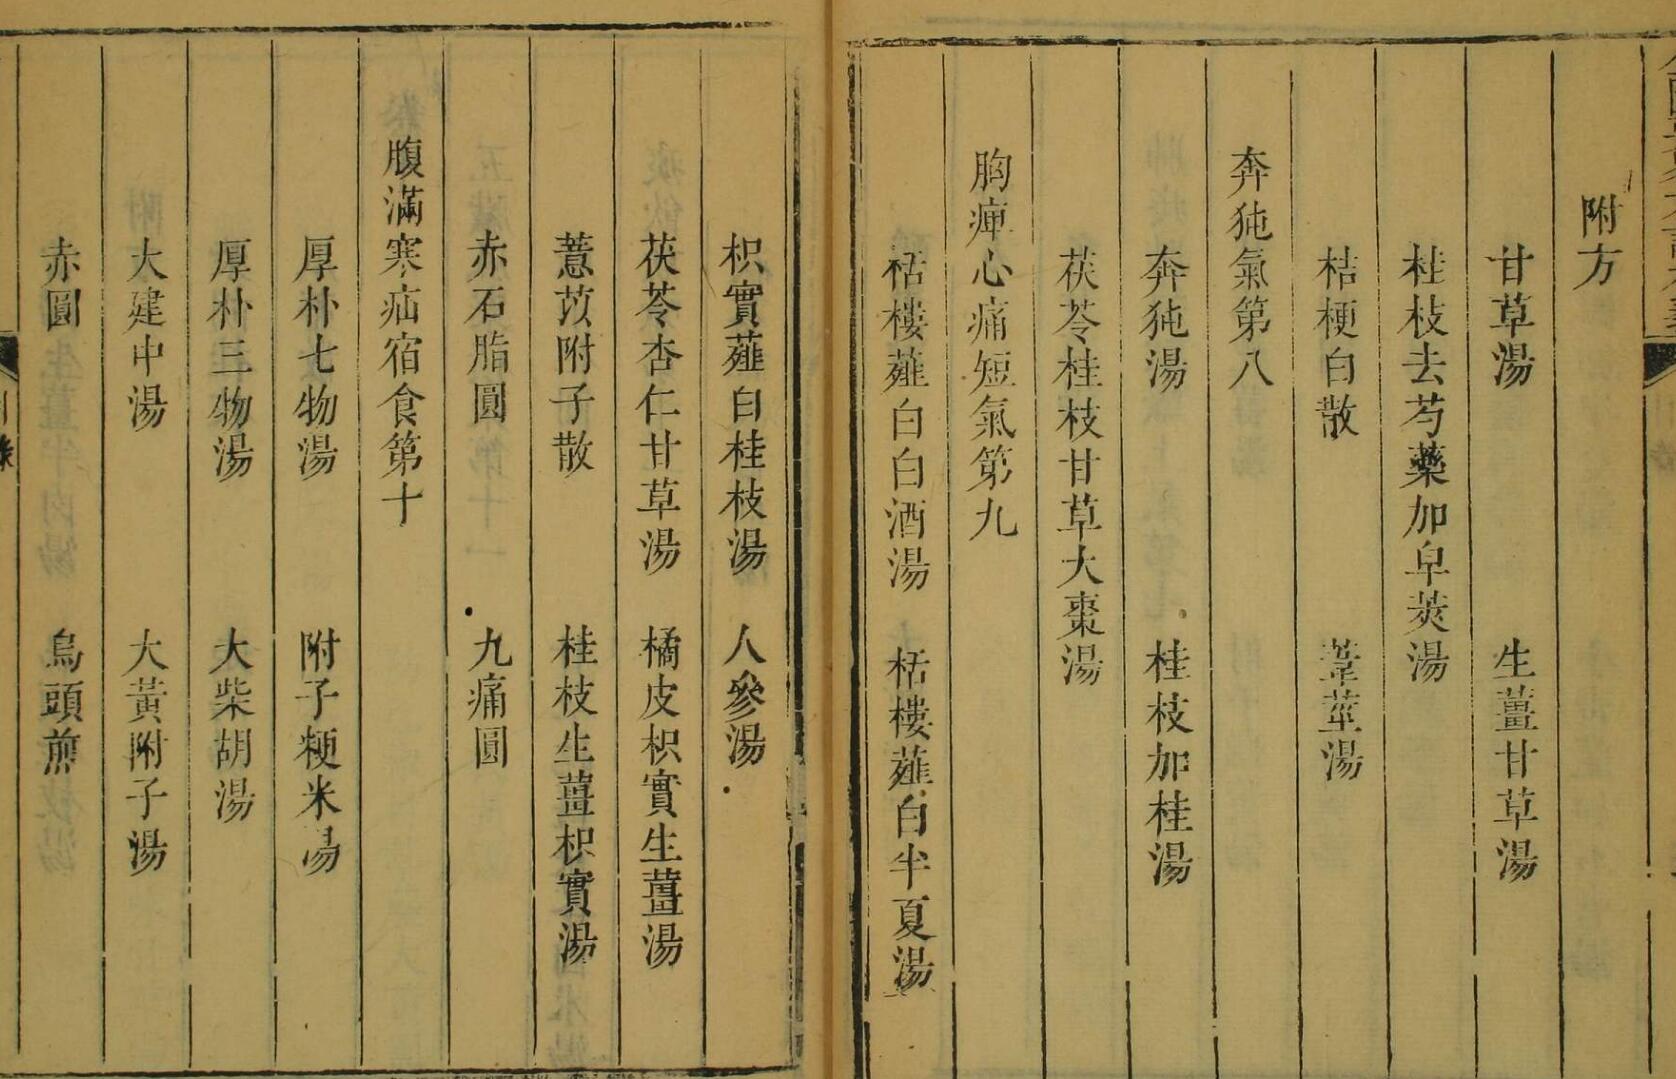 附方
甘草湯 生薑甘草湯
桂枝去芍藥加皁莢湯
桔梗白散 葦莖湯
奔㹠氣第八
奔㹠湯 桂枝加桂湯
茯苓桂枝甘草大棗湯
胸痺心痛短氣第九
栝樓薤白白酒湯 栝樓薤白半夏湯
枳實薤白桂枝湯 人參湯
茯苓杏仁甘草湯 橘皮枳實生薑湯
薏苡附子散 桂枝生薑枳實湯
赤石脂圓 九痛圓
腹滿寒疝宿食第十
厚朴七物湯 附子粳米湯
厚朴三物湯 大柴胡湯
大建中湯 大黃附子湯
赤圓 烏頭煎